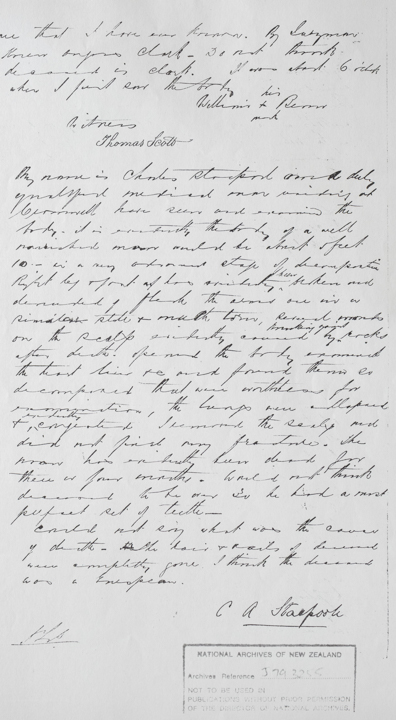 that I have ever known. By Juryman
Knew Clark - Do not think
deceased is Clark. It was about 6 o'clock
when I first saw the body
his
William + 
mark
Witness
Thomas Scott
My name is Charles Stacpool and a duly
qualified medical man residing at
Cromwell have seen and examined the
body. it is evidently the body of a well
nourished man would be about 5 feet
10 - in a very advanced stage of decomposition
Right leg & foot has evidently been broken and
denuded of flesh the arms are in a
similar state & much torn, several wounds
on the scalp evidently caused by rocks
after death. opened the body examined
the heart liver &c and found them so
decomposed that were worthless for
examination, the lungs were collapsed
& evidently congested I removed the scalp and
did not find any fracture. The
man has evidently been dead for
three or four months. would not think
deceased to be over 30 he had a most
perfect set of teeth -
Could not say what was the cause
of death - the hair & nails of deceased
were completely gone. I think the deceased
was a European.
C A Stacpoole
NATIONAL ARCHIVES OF NEW ZEALAND
Archives Reference
NOT TO BE USED IN
PUBLICATIONS WITHOUT PRIOR PERMISSION
OF THE DIRECTOR OF NATIONAL ARCHIVES